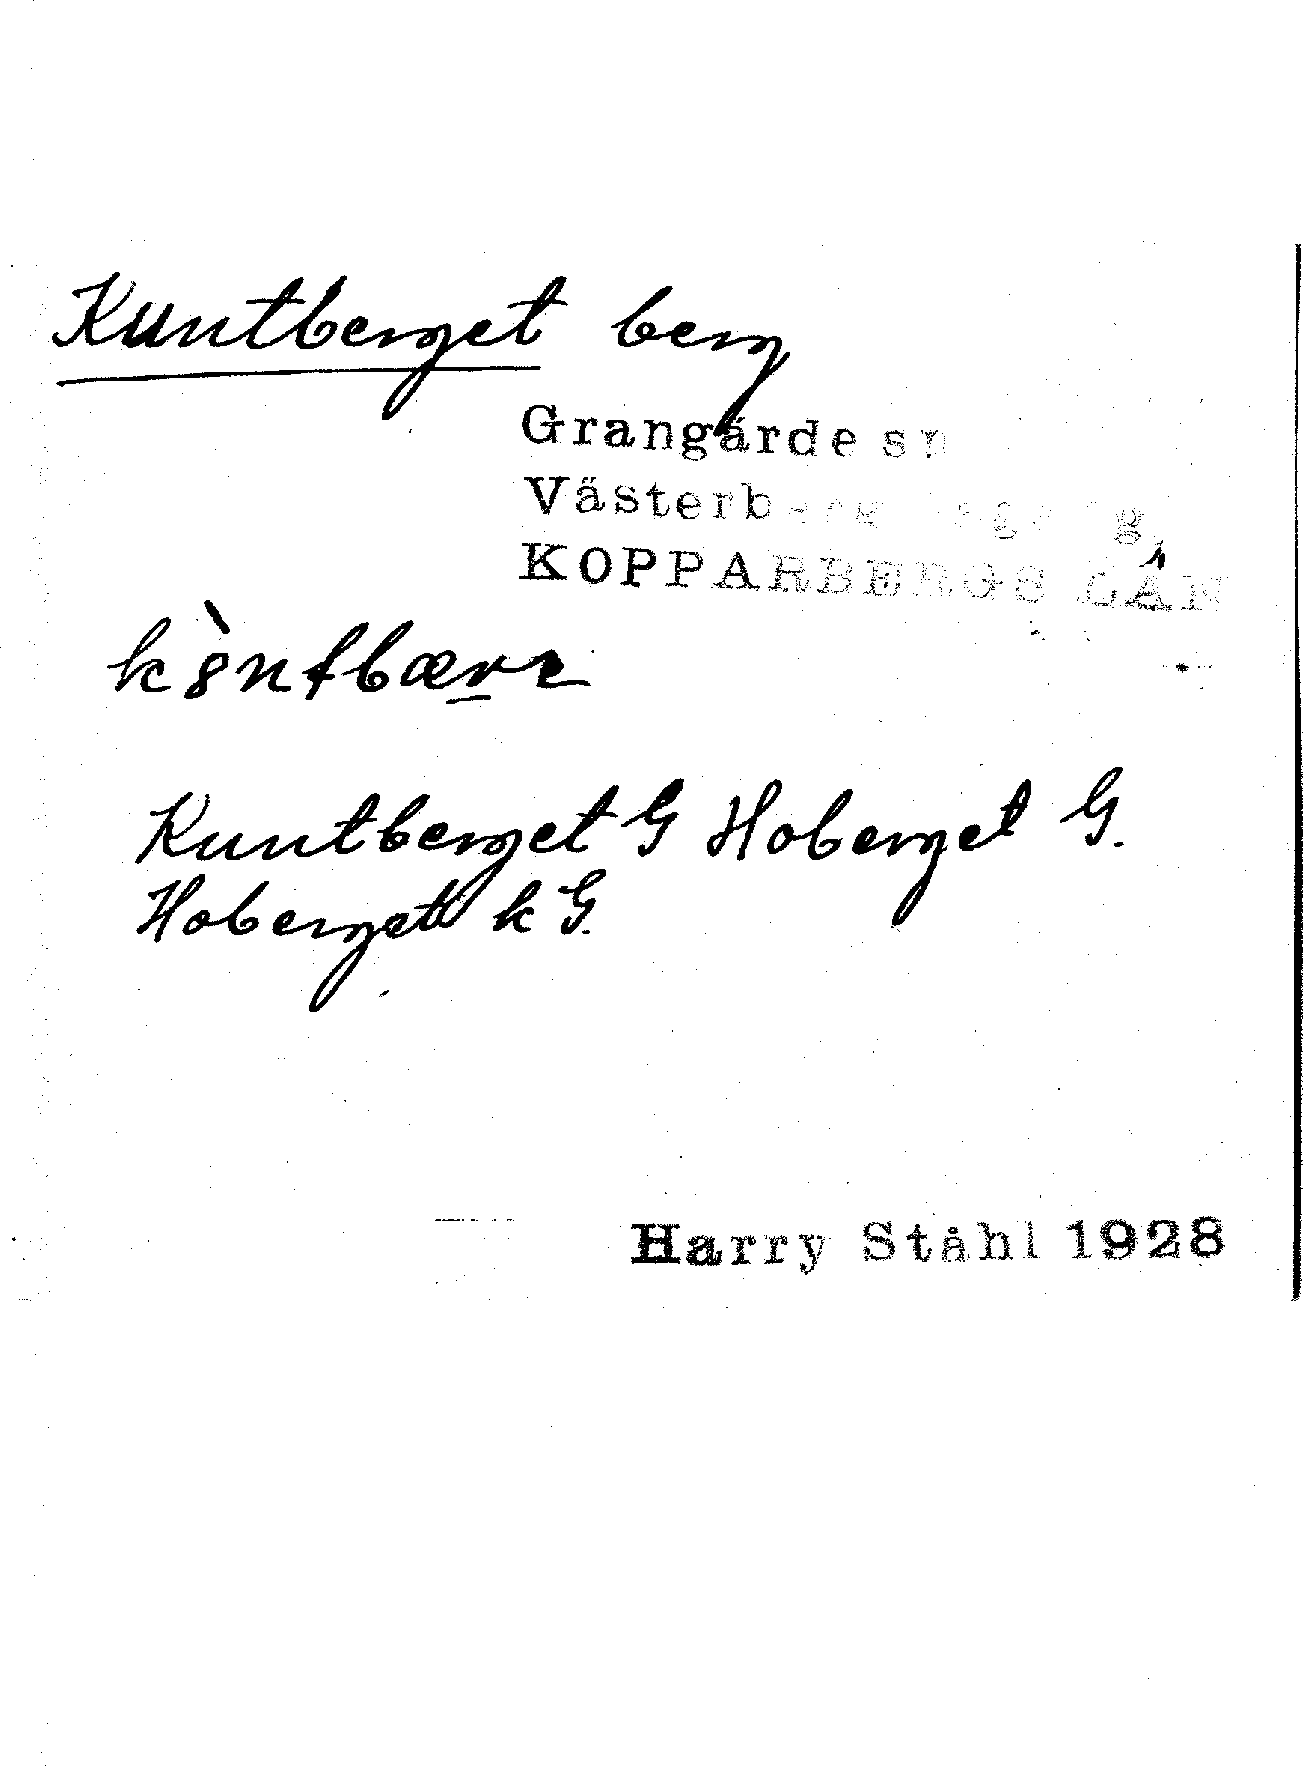 Kuntberget berg
Grangärde sn
Västerbergslags dg
KOPPARBERGS LÄN
kȣ̀ntbærɛ
Kuntberget G Hoberget G.
Hoberget k G.
Harry Ståhl 1928